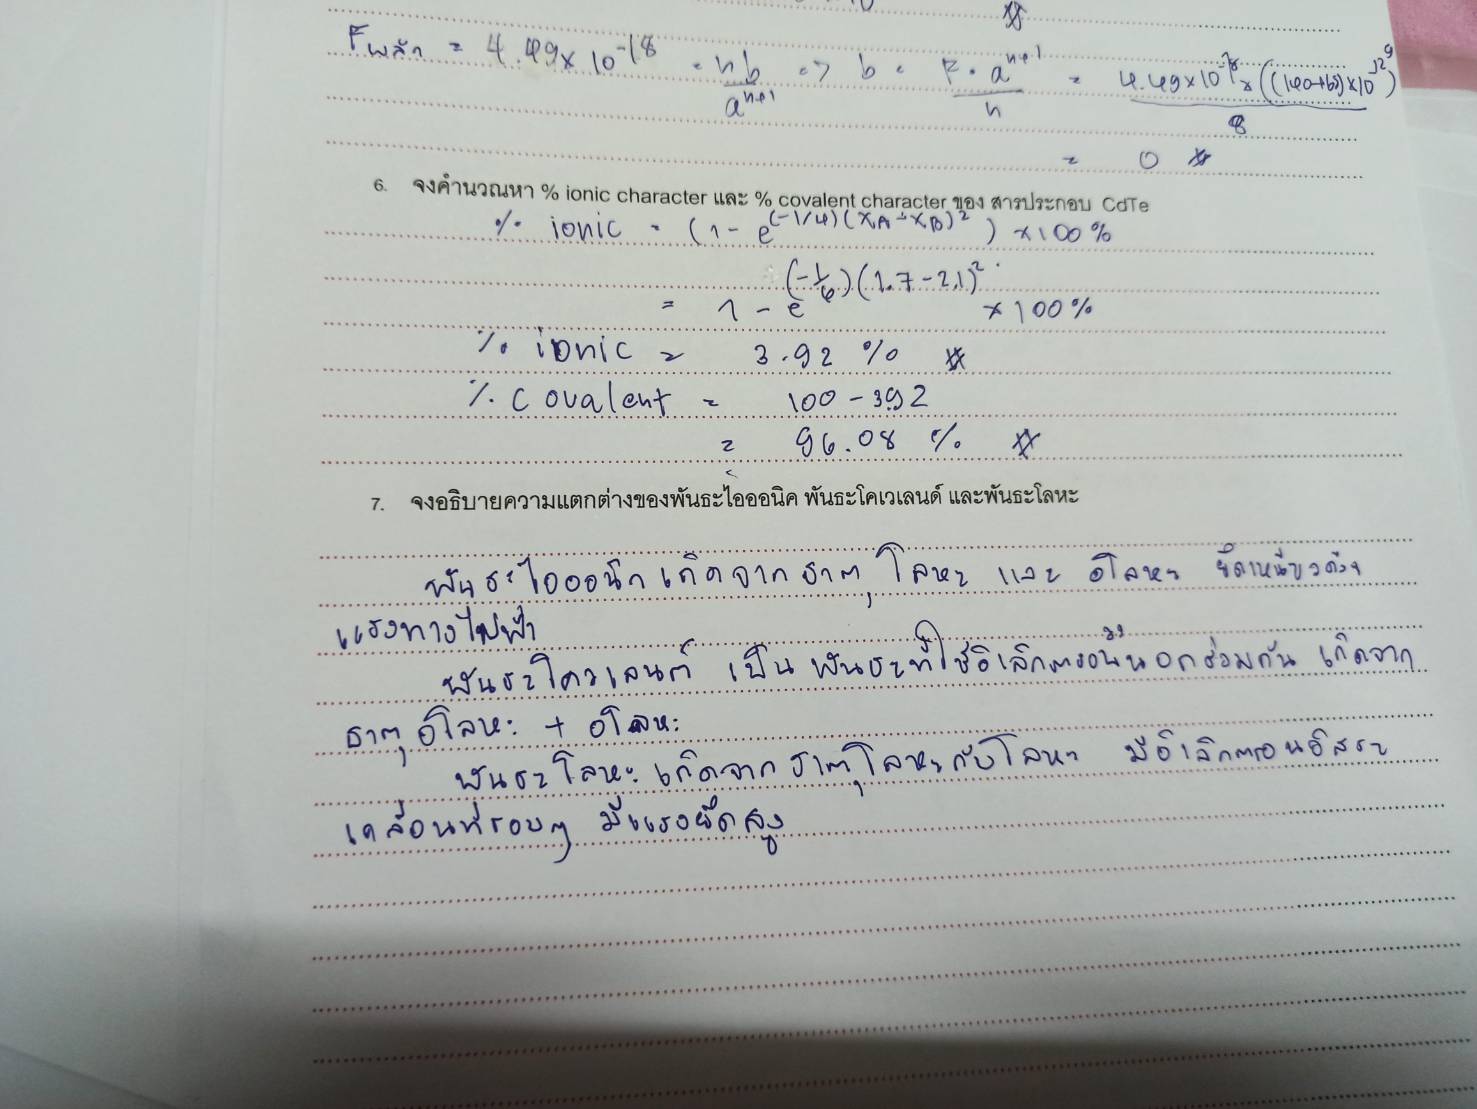 Fผลัก = 4.49 × 10⁻¹⁸ = nb/aⁿ⁺¹ => b = F · aⁿ⁺¹/n = 4.49×10⁻¹⁸ × ((140+68)×10⁻¹²)⁹/8
= 0
6. จงคำนวณหา % ionic character และ % covalent character ของ สารประกอบ CdTe
% ionic = (1 - e^(-1/4)(XA - XB)²) × 100%
= 1 - e^(-1/4)(1.7-2.1)² × 100%
% ionic = 3.92 %
% Covalent = 100 - 3.92
= 96.08 %
7. จงอธิบายความแตกต่างของพันธะไอออนิค พันธะโคเวเลนด์ และพันธะโลหะ
พันธะไอออนิก เกิดจาก ธาตุ โลหะ และ อโลหะ ยึดเหนี่ยวด้วย
แรงทางไฟฟ้า
พันธะโควเลนต์ เป็น พันธะที่ใช้อิเล็กตรอนวงนอกร่วมกัน เกิดจาก
ธาตุ อโลหะ + อโลหะ
พันธะโลหะ เกิดจาก ธาตุโลหะกับโลหะ มีอิเล็กตรอนอิสระ
เคลื่อนที่รอบๆ มีแรงยึดสูง